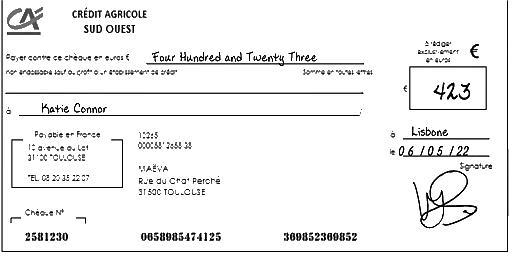 CA
CRÉDIT AGRICOLE
SUD OUEST
à rédiger
exclusivement €
en euros
Payer contre ce chèque en euros € Four Hundred and Twenty Three
non endossable sauf au profit d'un établissement de crédit Somme en toutes lettres
€ 423
à Katie Connor
Payable en France
10 avenue du Lot
31100 TOULOUSE
TEL. 08 20 35 22 07
10265
00008812658 38
MAËVA
Rue du Chat Perché
31500 TOULOUSE
à Lisbone
le 06/05/22
Signature
Chèque N°
2581230 0658985474125 369852369852